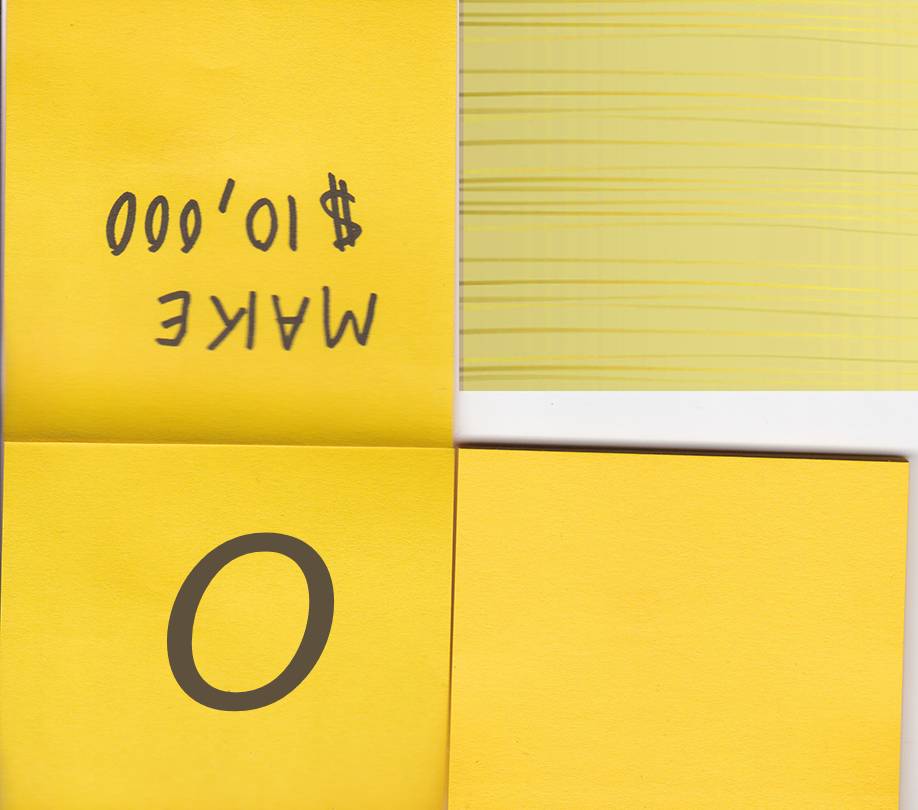 MAKE
$10,000
O